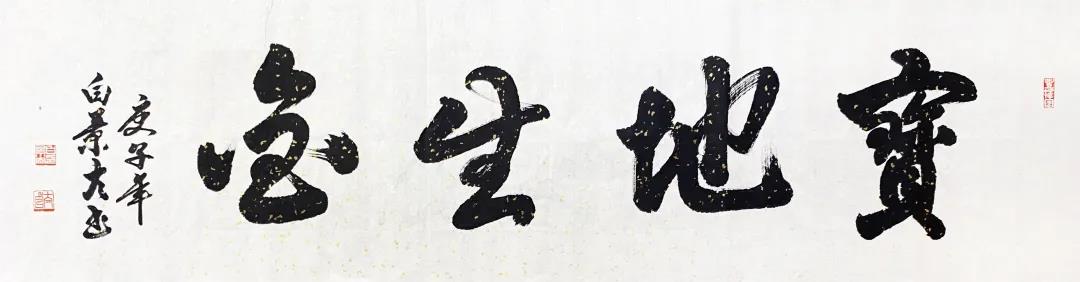 寶地生金
庚子年
白景大书